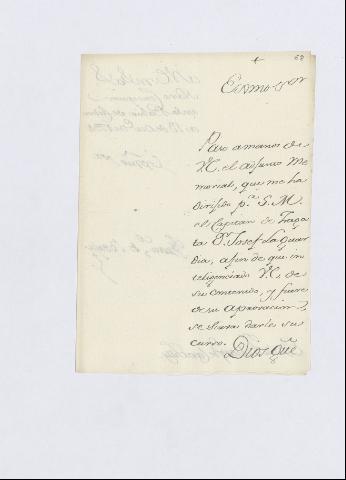 + 68
Exmo. Sor.
Paso a manos de
V.E. el adjunto Me
morial, que me ha
dirijido pa. S.M.
el Capitan de Fraga
ta Dn. Josef La Guar
dia, a fin de que in
teligenciado V.E. de
su contenido, y fuere
de su aprovacion,
se sirva darle su
curso. Dios gue.